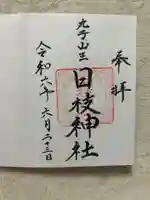 奉拝
丸子山王
日枝神社
令和六年 六月二十三日